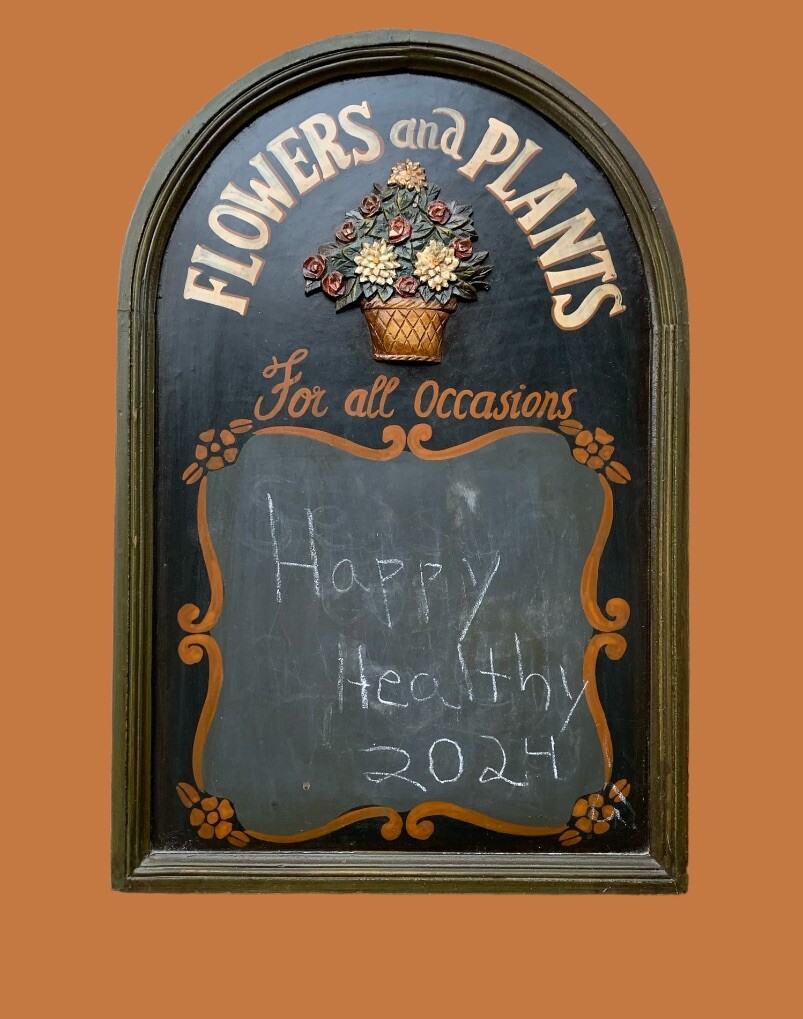 FLOWERS and PLANTS
For all Occasions
Happy
Healthy
2024